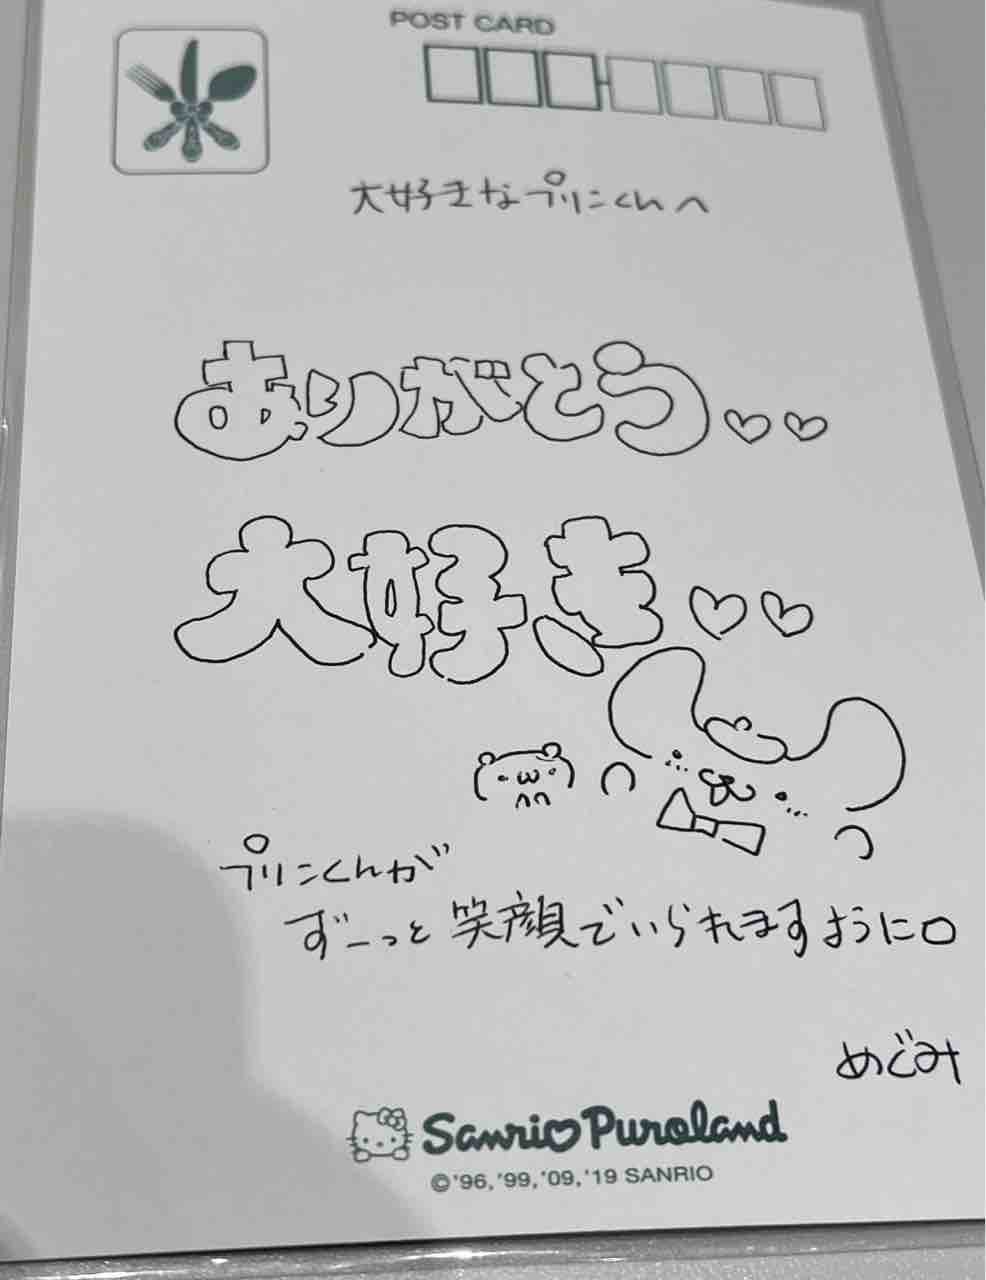 POST CARD
大好きなプリンくんへ
ありがとう♡♡
大好き♡♡
プリンくんが
ずーっと笑顔でいられますように○
めぐみ
Sanrio Puroland
©'96,'99,'09,'19 SANRIO